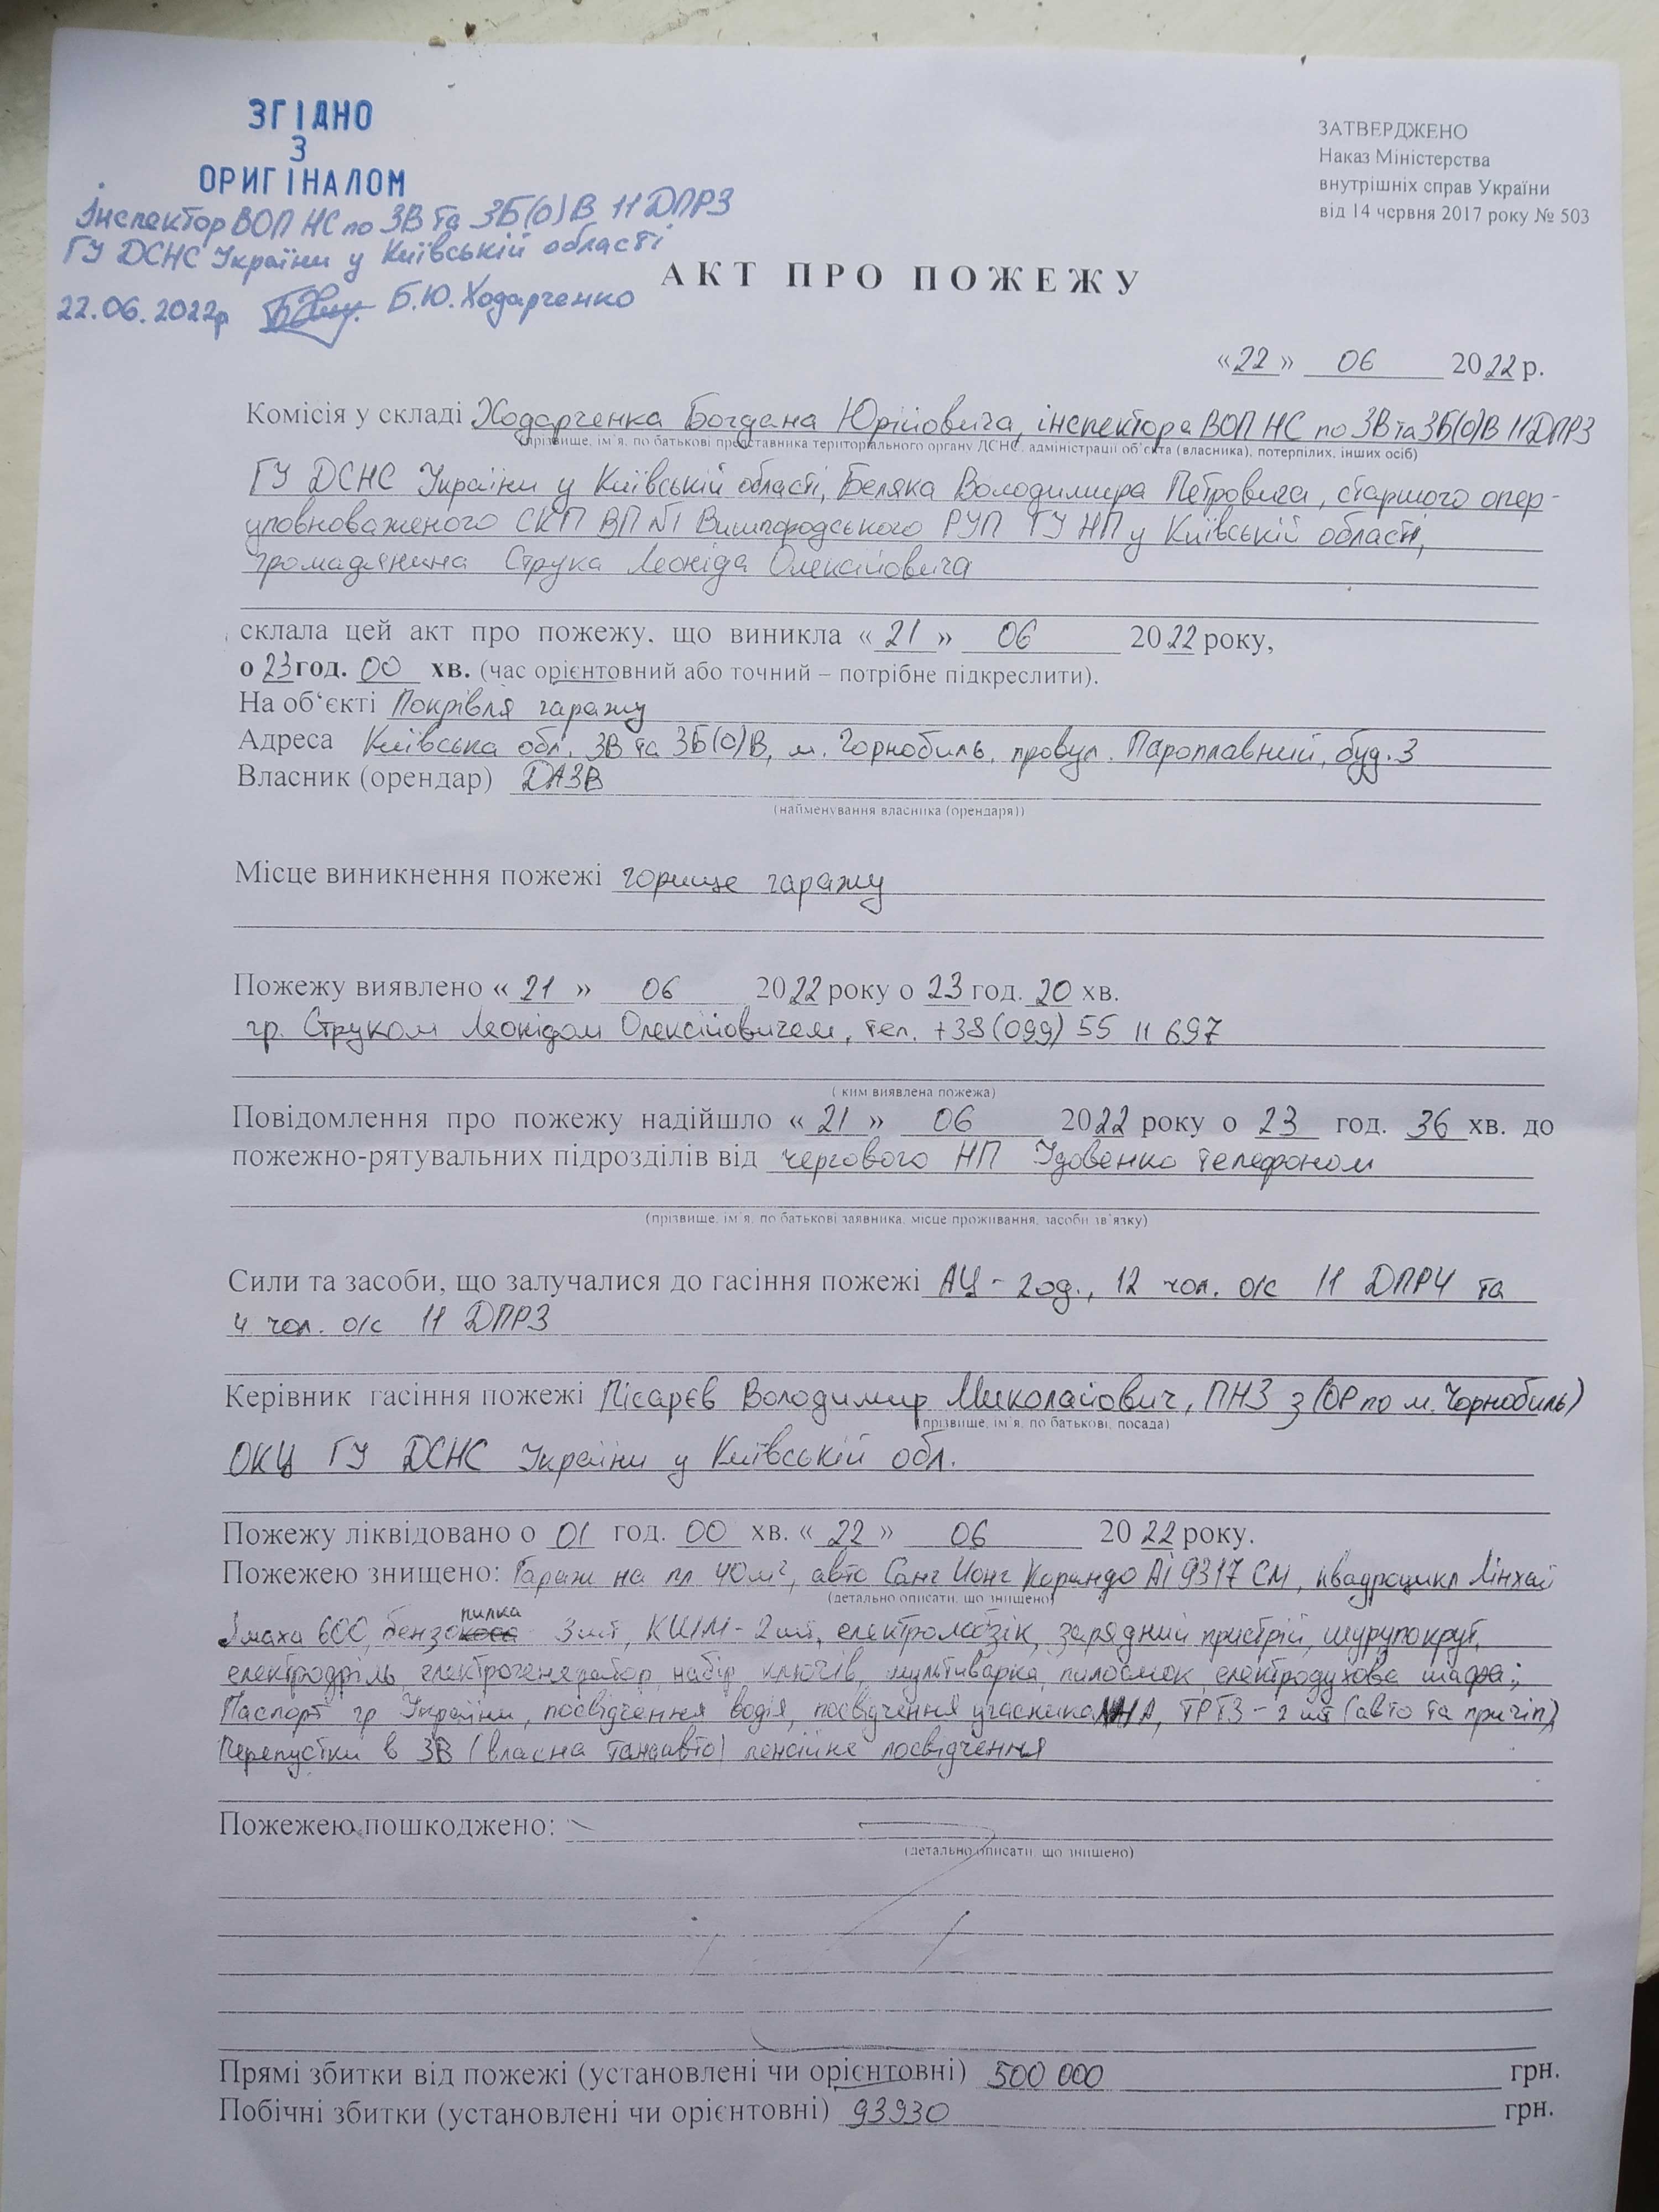 ЗГІДНО
З
ОРИГІНАЛОМ
Інспектор ВОП НС по ЗВ та ЗБ(О)В 11 ДПРЗ
ГУ ДСНС України у Київській області
22.06.2022р Б.Ю. Ходарченко
ЗАТВЕРДЖЕНО
Наказ Міністерства
внутрішніх справ України
від 14 червня 2017 року № 503
АКТ ПРО ПОЖЕЖУ
«22» 06 2022 р.
Комісія у складі Ходарченка Богдана Юрійовича, інспектора ВОП НС по ЗВ та ЗБ(О)В 11 ДПРЗ
(прізвище, ім'я, по батькові представника територіального органу ДСНС, адміністрації об'єкта (власника), потерпілих, інших осіб)
ГУ ДСНС України у Київській області, Беляка Володимира Петровича, старшого опер-
уповноваженого СКП ВП №1 Вишгородського РУП ГУ НП у Київській області,
громадянина Струка Леоніда Олексійовича
склала цей акт про пожежу, що виникла «21» 06 2022 року,
о 23 год. 00 хв. (час орієнтовний або точний – потрібне підкреслити).
На об‘єкті Покрівля гаражу
Адреса Київська обл. ЗВ та ЗБ(О)В, м. Чорнобиль, провул. Пароплавний, буд. 3
Власник (орендар) ДАЗВ
(найменування власника (орендаря))
Місце виникнення пожежі горище гаражу
Пожежу виявлено «21» 06 2022 року о 23 год. 20 хв.
гр. Струком Леонідом Олексійовичем, тел. +38(099) 55 11 697
( ким виявлена пожежа)
Повідомлення про пожежу надійшло «21» 06 2022 року о 23 год. 36 хв. до
пожежно-рятувальних підрозділів від чергового НП Удовенко телефоном
(прізвище, ім'я, по батькові заявника, місце проживання, засоби зв'язку)
Сили та засоби, що залучалися до гасіння пожежі АЦ - 2од., 12 чол. о/с 11 ДПРЧ та
4 чол. о/с 11 ДПРЗ
Керівник гасіння пожежі Пісарєв Володимир Миколайович, ПНЗ з (ОР по м. Чорнобиль)
(прізвище, ім'я, по батькові, посада)
ОКЦ ГУ ДСНС України у Київській обл.
Пожежу ліквідовано о 01 год. 00 хв. «22» 06 2022 року.
Пожежею знищено: Гараж на пл 40м², авто Санг Йонг Корандо АІ 9317 СМ, квадроцикл Лінхай
(детально описати, що знищено)
Ямаха 600, бензопилка 3 шт, КШМ - 2 шт, електролобзік, зарядний пристрій, шурупокрут,
електродріль, електрогенератор, набір ключів, мультиварка, пилосмок, електродухова шафа;
Паспорт гр. України, посвідчення водія, посвідчення учасника ЛНА, ТРТЗ - 2 шт (авто та причіп)
Перепустки в ЗВ (власна та на авто) пенсійне посвідчення
Пожежею пошкоджено:
(детально описати, що знищено)
Прямі збитки від пожежі (установлені чи орієнтовні) 500 000 грн.
Побічні збитки (установлені чи орієнтовні) 93930 грн.